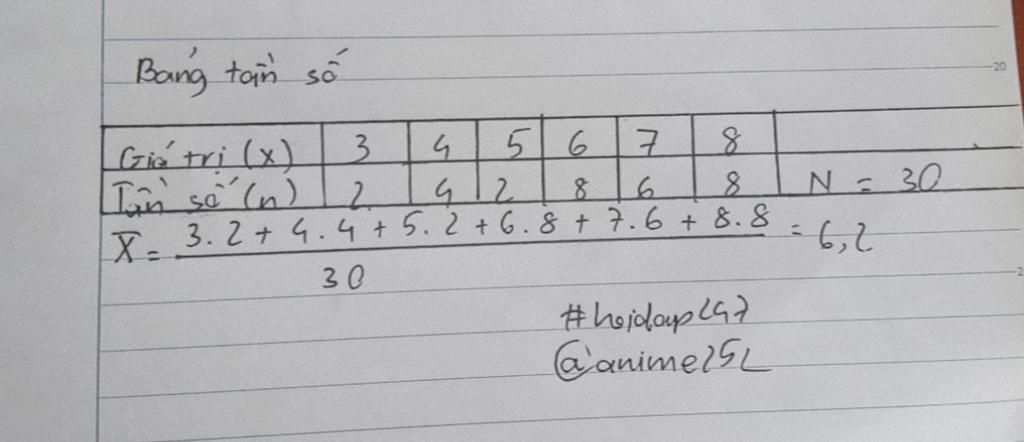 Bảng tần số
Giá trị (x) 3 4 5 6 7 8
Tần số (n) 2 4 2 8 6 8 N = 30
X̅ = 3.2 + 4.4 + 5.2 + 6.8 + 7.6 + 8.8 = 6,2
30
#hoidap247
@anime252
20